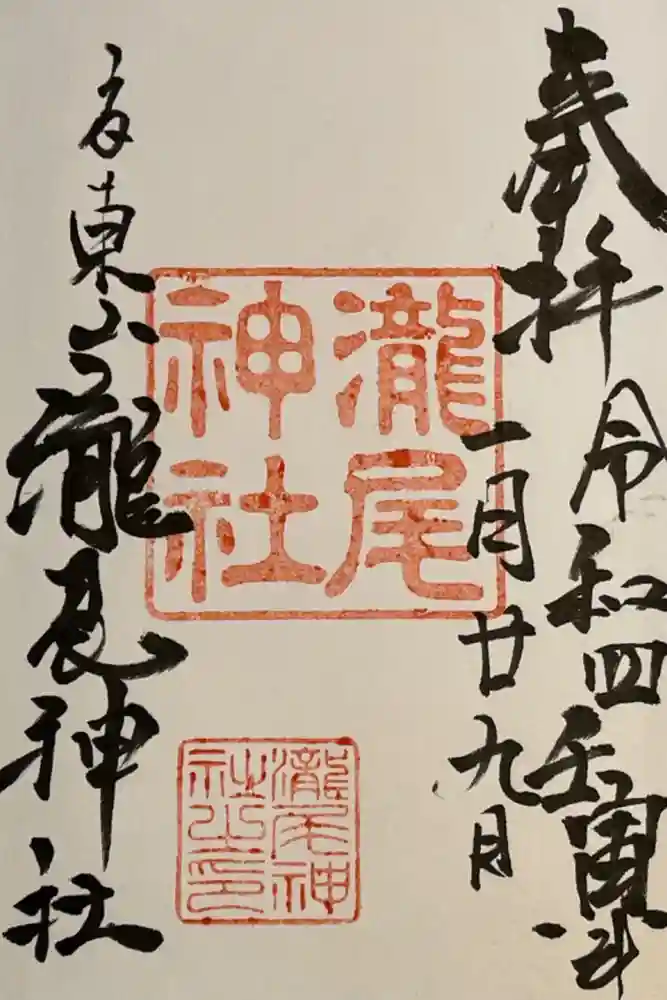 奉拝
令和四壬寅年
一月廿九日
京東山瀧尾神社
瀧尾
神社
瀧尾神
社之印